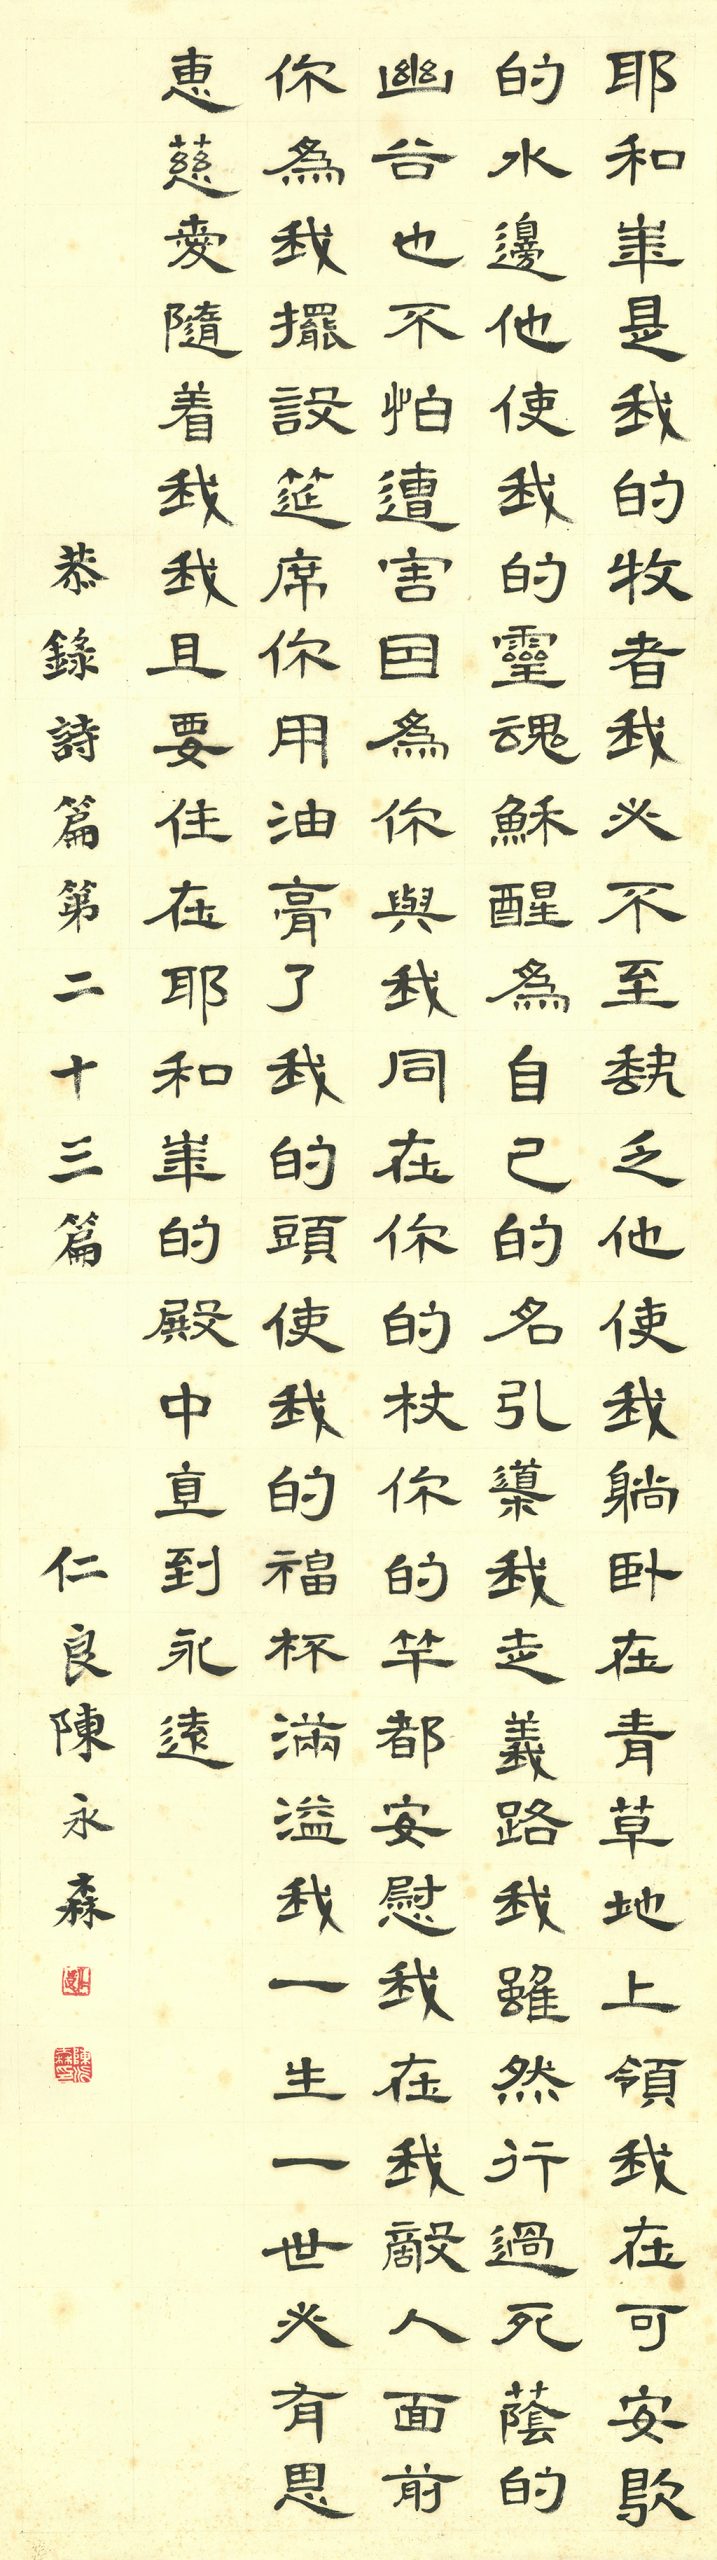 耶和華是我的牧者我必不至缺乏他使我躺臥在青草地上領我在可安歇
的水邊他使我的靈魂穌醒為自己的名引導我走義路我雖然行過死蔭的
幽谷也不怕遭害因為你與我同在你的杖你的竿都安慰我在我敵人面前
你為我擺設筵席你用油膏了我的頭使我的福杯滿溢我一生一世必有恩
惠慈愛隨着我我且要住在耶和華的殿中直到永遠
恭錄詩篇第二十三篇 仁良陳永森